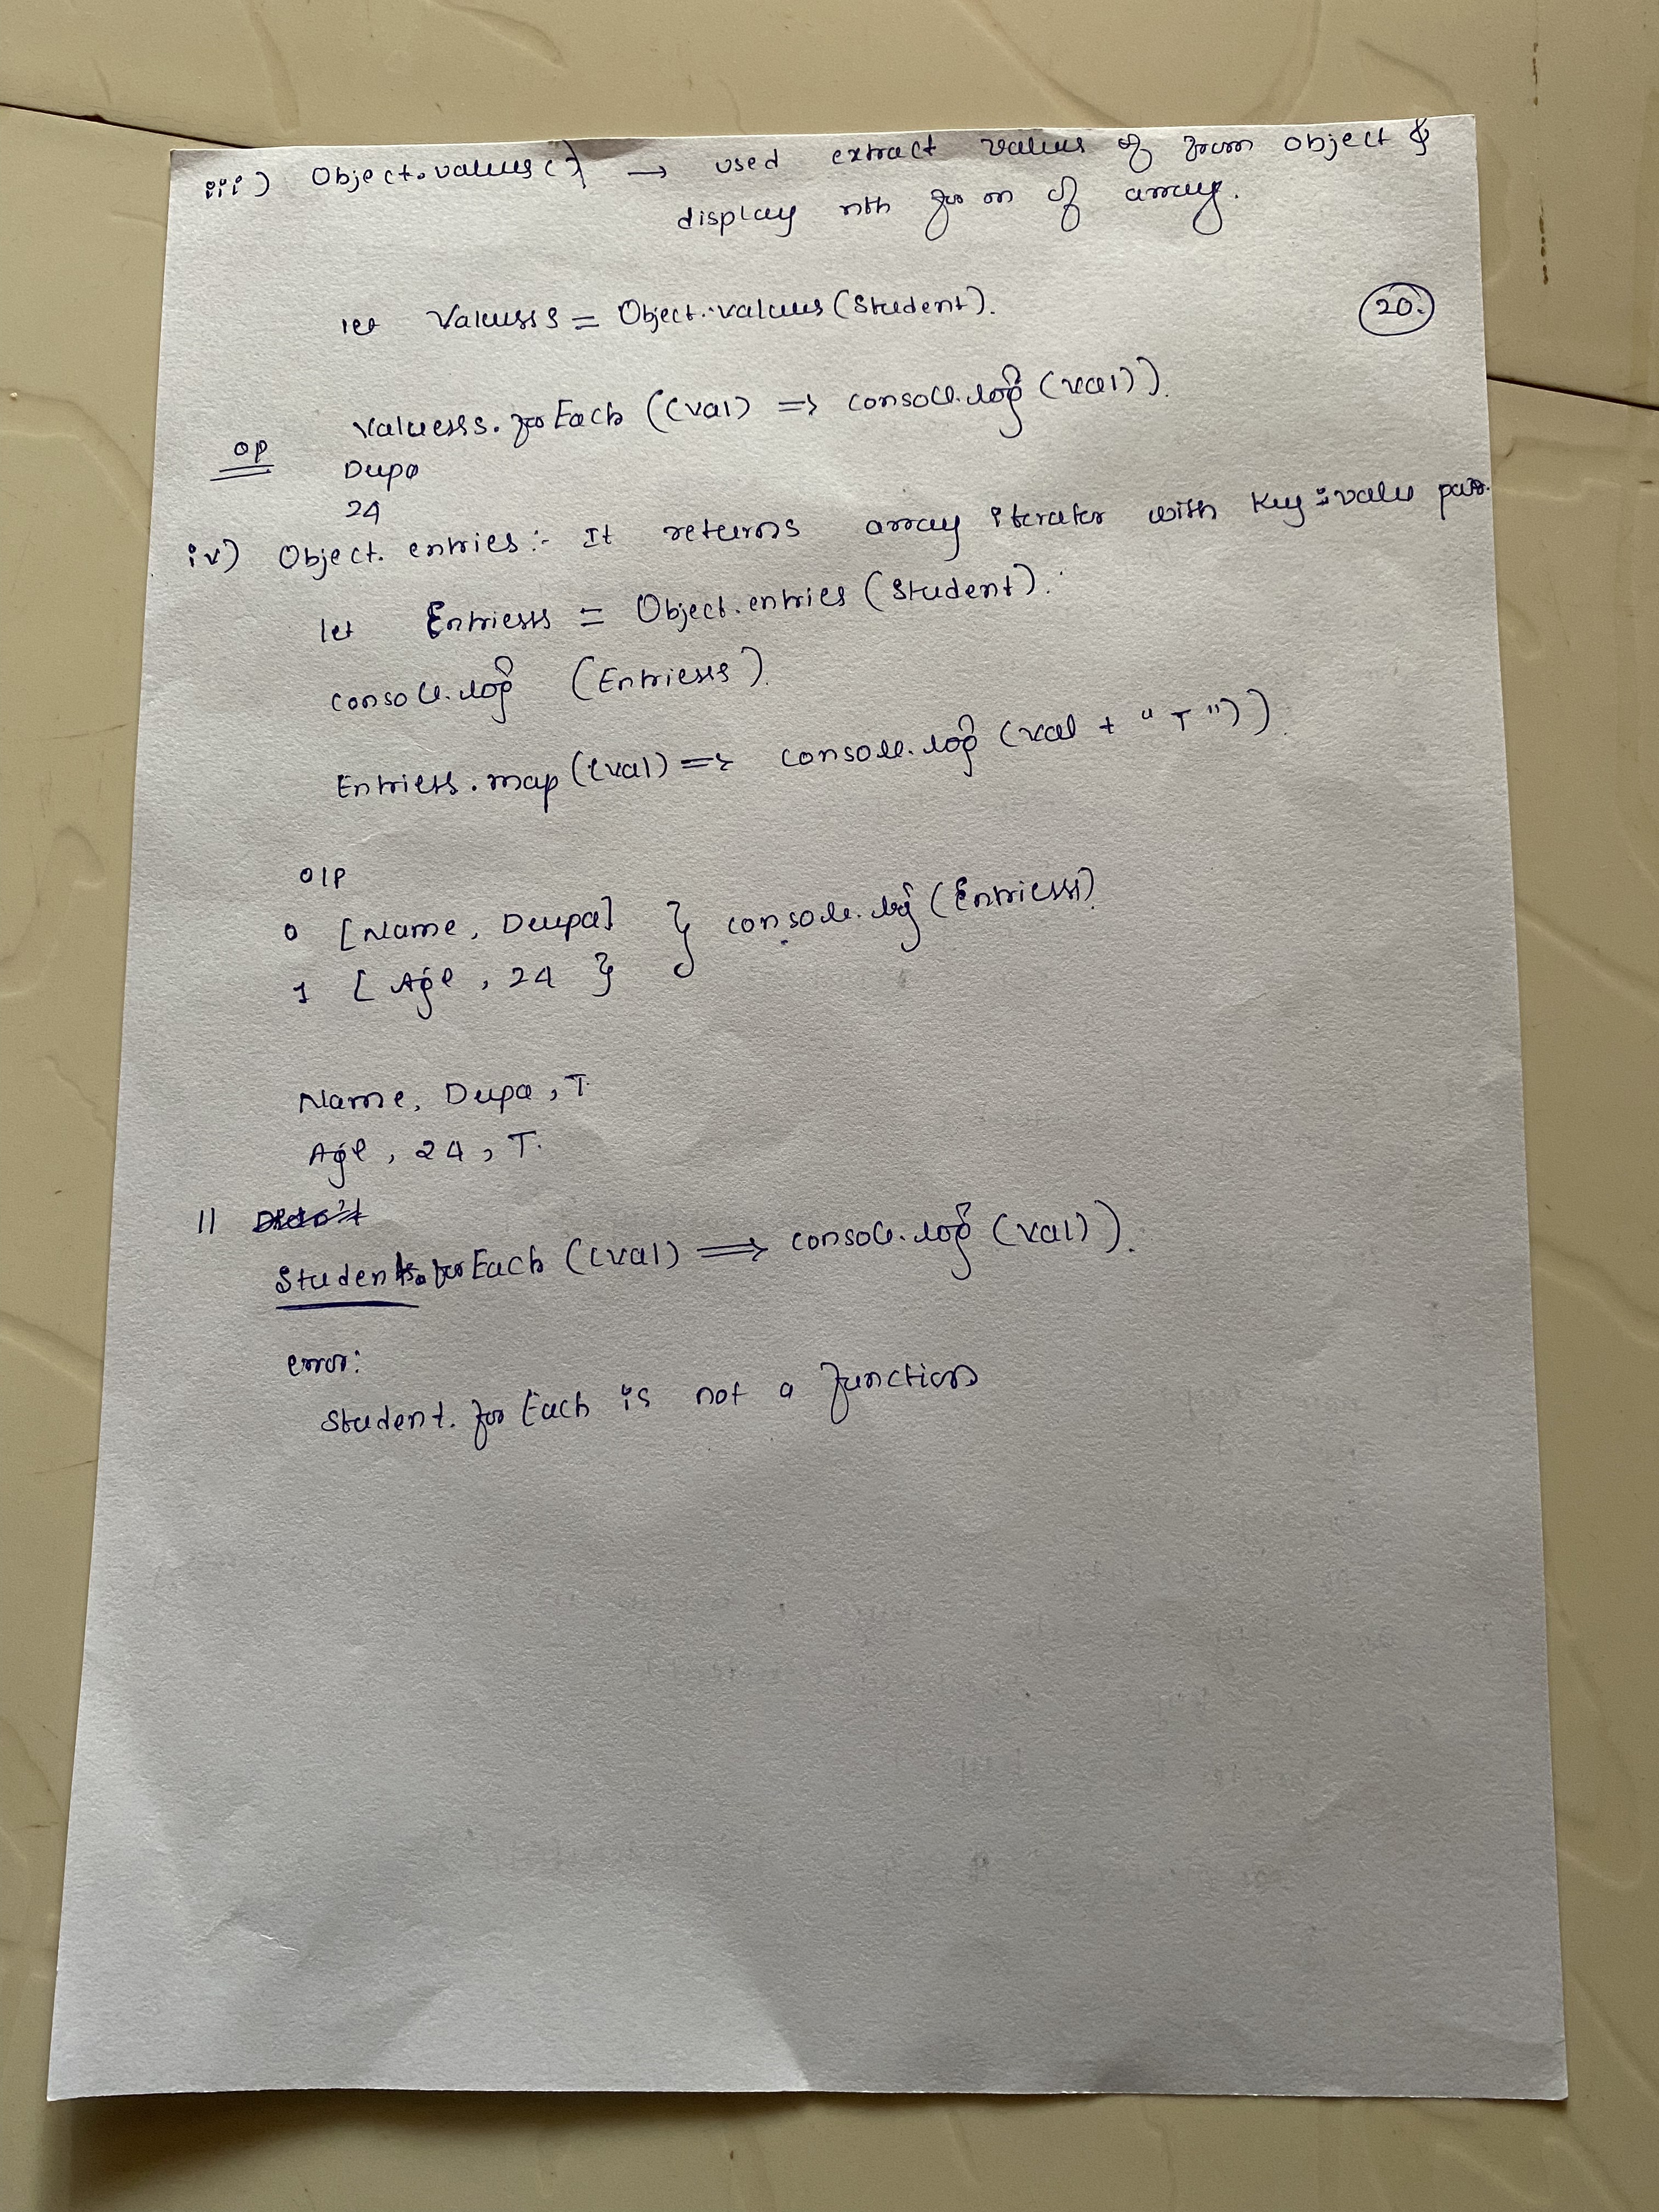 iii) Object.values() → used extract values of from object &
display nth form of array.
let Valuess = Object.values(Student).
20.
Valuess.forEach((val) => console.log(val)).
op
Deepa
24
iv) Object.entries:- It returns array iterator with key:value pair.
let Entriess = Object.entries(Student).
console.log (Entriess).
Entriess.map((val) => console.log(val + "T"))
o/p
0 [Name, Deepa] } console.log(Entriess)
1 [Age, 24 }
Name, Deepa, T.
Age, 24, T.
//
Student.forEach((val) => console.log(val)).
error:
Student.forEach is not a function